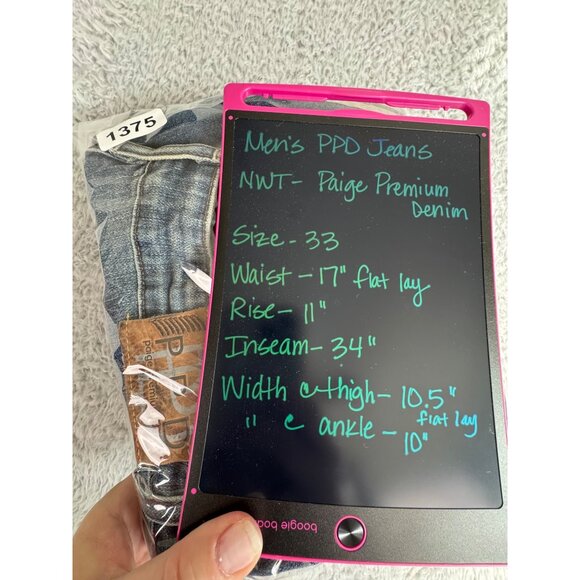 1375
Men's PPD Jeans
NWT- Paige Premium
Denim
Size - 33
Waist - 17" flat lay
Rise - 11"
Inseam - 34"
Width @ thigh - 10.5"
flat lay
" @ ankle - 10"
PPD
boogie boa